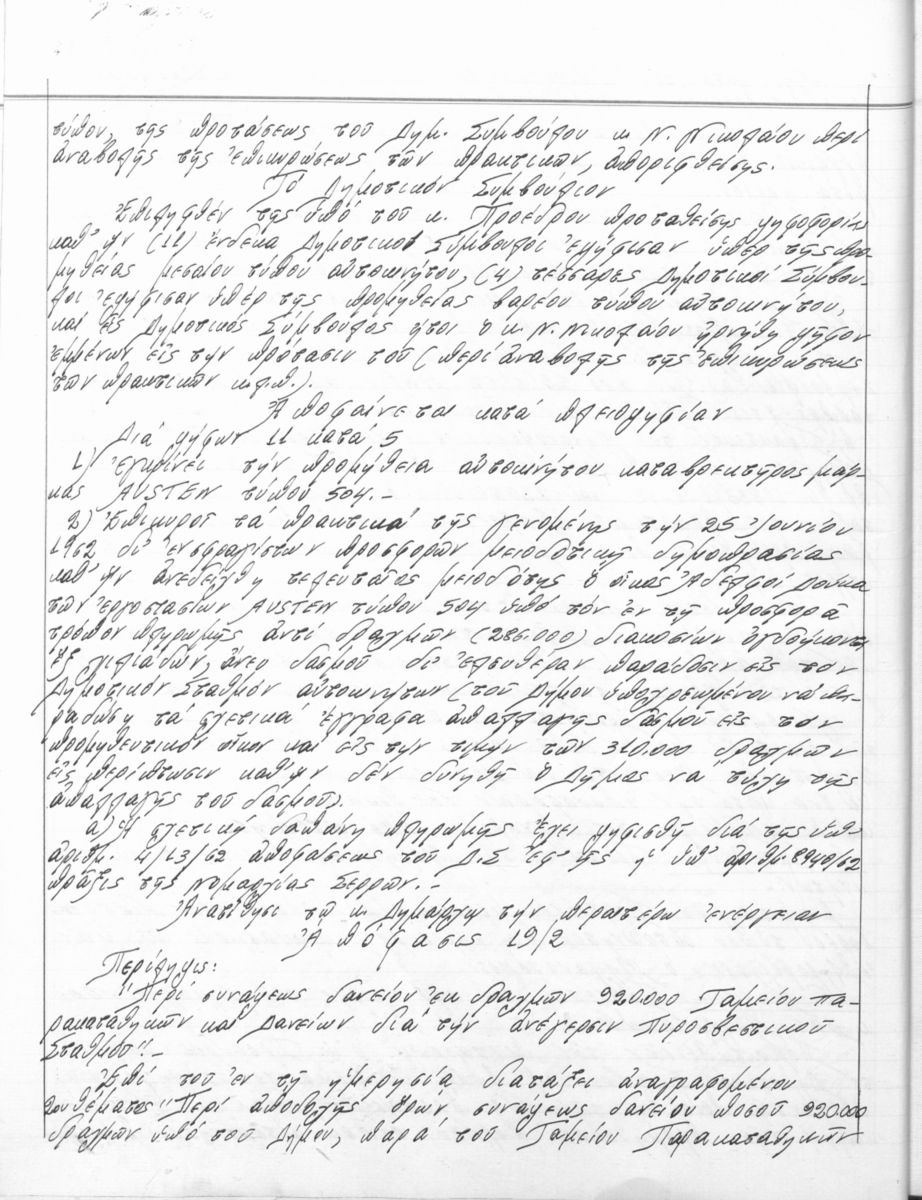 τύπου, τῆς προτάσεως τοῦ Δημ. Συμβούλου κ. Ν. Νικολάου περί
ἀναβολῆς τῆς ἐπικυρώσεως τῶν πρακτικῶν, ἀπορριφθείσης.
Τό Δημοτικόν Συμβούλιον
Ἐπιληφθέν τῆς ὑπό τοῦ κ. Προέδρου προταθείσης ψηφοφορίας
καθ' ἥν (11) ἕνδεκα Δημοτικοί Σύμβουλοι ἐψήφισαν ὑπέρ τῆς προ-
μηθείας μεσαίου τύπου αὐτοκινήτου, (4) τέσσαρες Δημοτικοί Σύμβου-
λοι ἐψήφισαν ὑπέρ τῆς προμηθείας βαρέου τύπου αὐτοκινήτου,
καί εἷς Δημοτικός Σύμβουλος ἤτοι ὁ κ. Ν. Νικολάου ἠρνήθη ψῆφον
ἐμμένων εἰς τήν πρότασίν του (περί ἀναβολῆς τῆς ἐπικυρώσεως
τῶν πρακτικῶν κ.λ.π.).
Ἀποφαίνεται κατά πλειοψηφίαν
Διά ψήφων 11 κατά 5
1) Ἐγκρίνει τήν προμήθεια αὐτοκινήτου καταβρεκτῆρος μάρ-
κας AUSTEN τύπου 504.-
2) Ἐπικυροῖ τά πρακτικά τῆς γενομένης τήν 25 Ἰουνίου
1962 δι' ἐνσφραγίστων προσφορῶν μειοδοτικῆς δημοπρασίας
καθ' ἥν ἀνεδείχθη τελευταῖος μειοδότης ὁ οἶκος Ἀδελφοί Δούκα
τῶν ἐργοστασίων AUSTEN τύπου 504 ὑπό τόν ἐν τῇ προσφορᾶ
τρόπον πληρωμῆς ἀντί δραχμῶν (286.000) διακοσίων ὀγδοήκοντα
ἕξ χιλιάδων, ἄνευ δασμοῦ δι' ἐλευθέραν παράδοσιν εἰς τόν
Δημοτικόν Σταθμόν αὐτοκινήτων (τοῦ Δήμου ὑποχρεωμένου νά πα-
ραδώσῃ τά σχετικά ἔγγραφα ἀπαλλαγῆς δασμοῦ εἰς τόν
προμηθευτικόν οἶκον καί εἰς τήν τιμήν τῶν 310.000 δραχμῶν
εἰς περίπτωσιν καθ' ἥν δέν δυνηθῆ ὁ Δῆμος νά τύχη τῆς
ἀπαλλαγῆς τοῦ δασμοῦ).
α) Ἡ σχετική δαπάνη πληρωμῆς ἔχει ψηφισθῆ διά τῆς ὑπ'
ἀριθμ. 4/13/62 ἀποφάσεως τοῦ Δ.Σ ἐφ' ἧς ἡ ὑπ' ἀριθμ. 8940/62
πρᾶξις τῆς Νομαρχίας Σερρῶν.-
Ἀνατίθησι τῷ κ. Δημάρχῳ τήν περαιτέρω ἐνέργειαν
Ἀπόφασις 19/2
Περίληψις:
"Περί συνάψεως δανείου ἐκ δραχμῶν 920.000 Ταμείου Πα-
ρακαταθηκῶν καί Δανείων διά τήν ἀνέγερσιν Πυροσβεστικοῦ
Σταθμοῦ".-
Ἐπί τοῦ ἐν τῇ ἡμερησίᾳ διατάξει ἀναγραφομένου
2ου θέματος "Περί ἀποδοχῆς ὅρων συνάψεως δανείου ποσοῦ 920.000
δραχμῶν ὑπό τοῦ Δήμου, παρά τοῦ Ταμείου Παρακαταθηκῶν